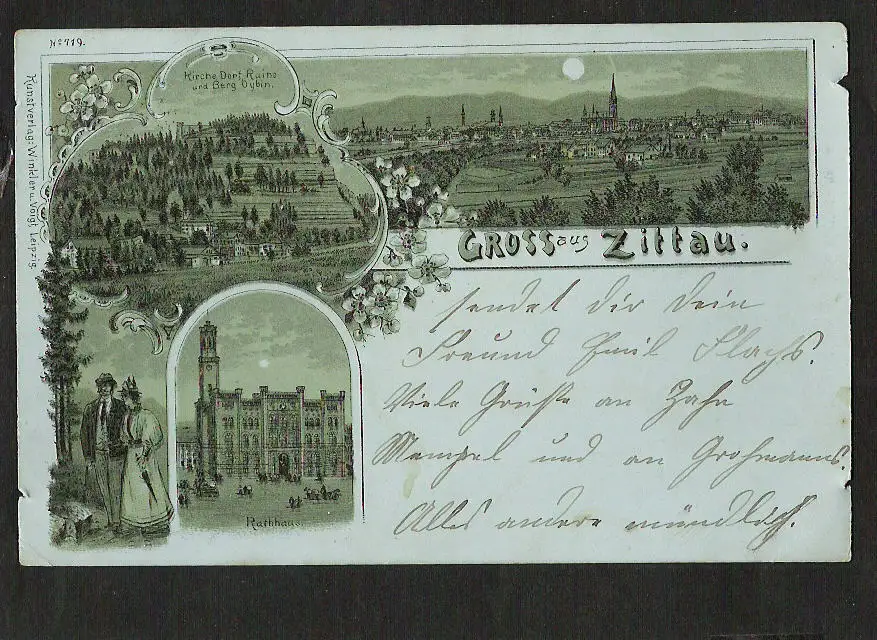 No 719.
Kirche, Dorf, Ruine
und Berg Oybin.
Kunstverlag: Winkler u. Voigt, Leipzig.
GRUSS aus Zittau.
sendet dir dein
Freund Emil Flachs.
Viele Grüße an Zahn
und an Grohmanns.
Alles andere mündlich.
Rathhaus.